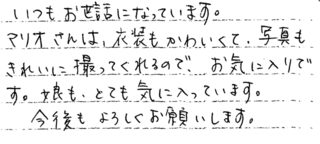 いつもお世話になっています。
マリオさんは、衣装もかわいくて、写真も
きれいに撮ってくれるので、お気に入りで
す。娘も、とても気に入っています。
今後もよろしくお願いします。